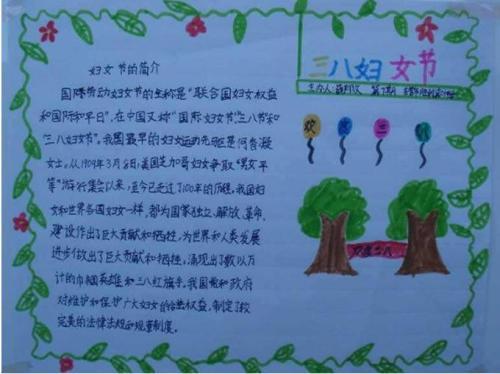 三八妇女节
主办人：
欢庆三八
欢度三八
妇女节的简介
国际劳动妇女节的全称是“联合国妇女权益
和国际和平日”，在中国又称“国际妇女节”、“三八节”和
“三八妇女节”。我国最早的妇女运动先驱是何香凝
女士。从1909年3月8日，美国芝加哥妇女争取“男女平
等”游行集会以来，至今已走过了100年的历程，我国妇
女和世界各国妇女一样，都为国家独立、解放、革命、
建设作出了巨大贡献和牺牲，为世界和人类发展
进步做出了巨大贡献和牺牲，涌现出了数以万
计的巾帼英雄和三八红旗手，我国党和政府
对维护和保护广大妇女的合法权益，制定了较
完美的法律法规和规章制度。